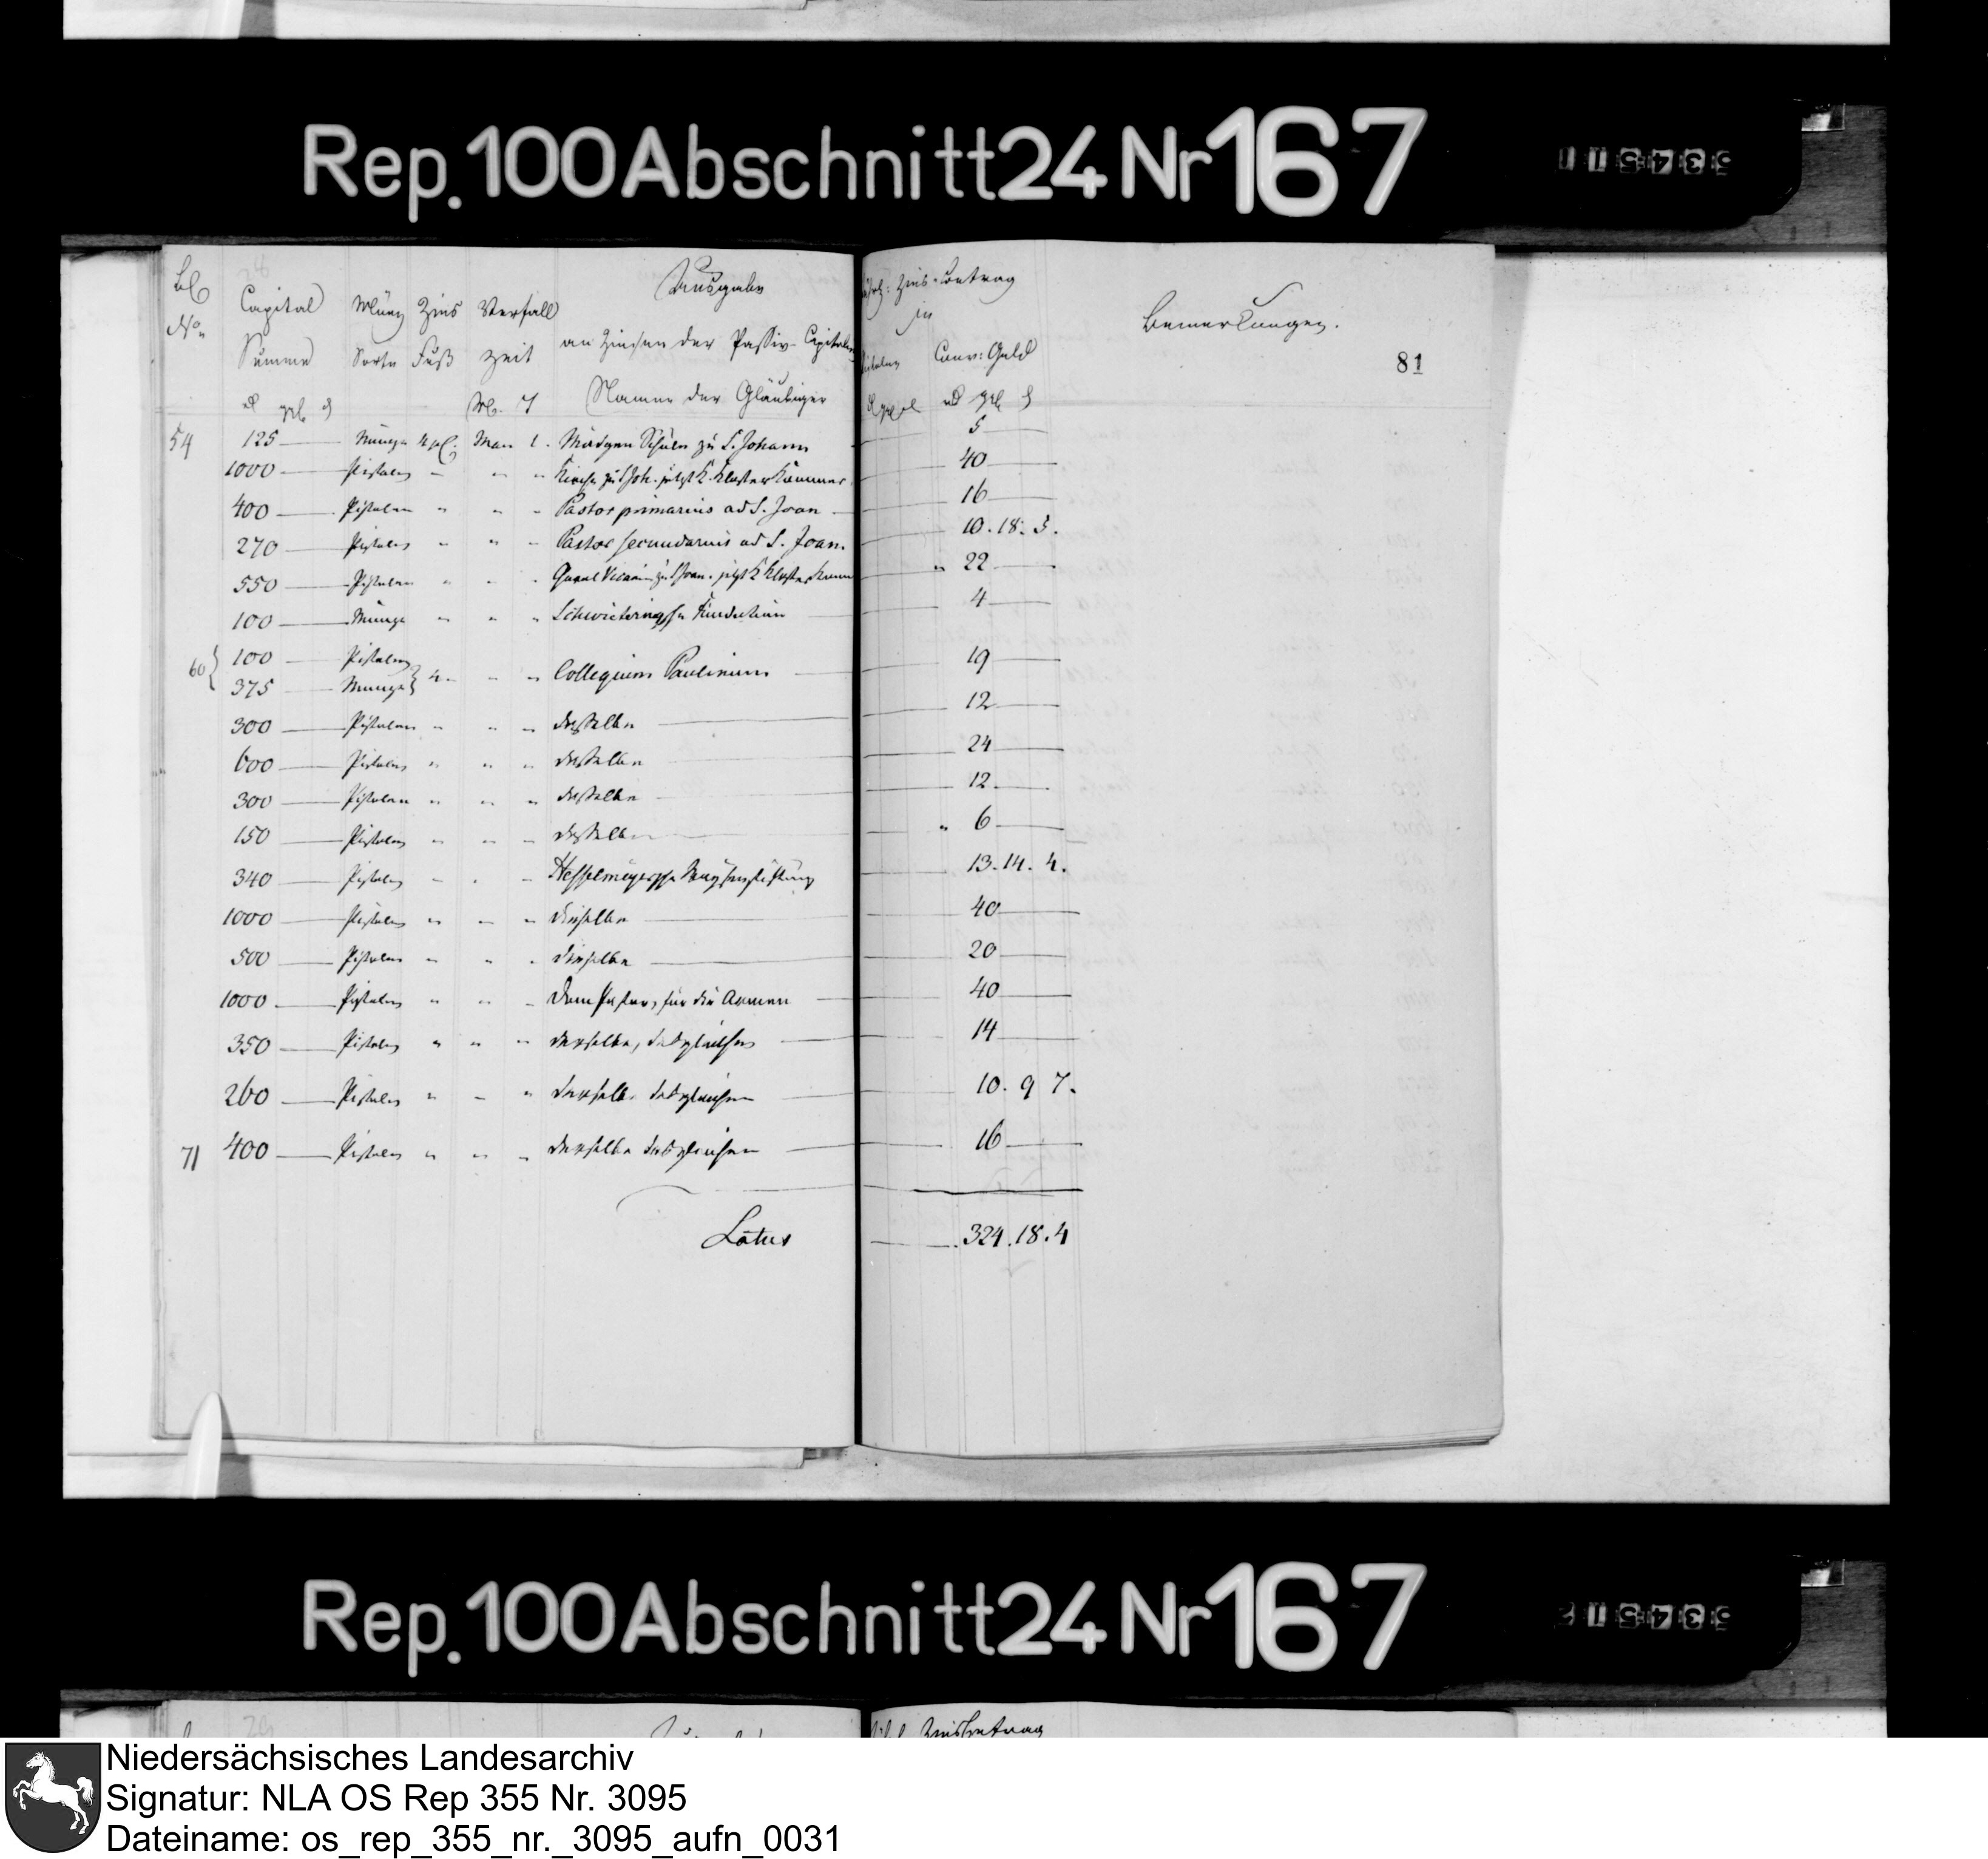 Rep. 100 Abschnitt 24 Nr 167
53451 1
No
Capital Summe
Münz Sorte
Zins Fuß
Verfall zeit
M. T
Ausgabe
an Zinsen der Passiv-Capitalien
Namen der Gläubiger
Zins-Betrag
in
Pistolen
Conv: Geld
Bemerkungen.
81
54 125 Münze 4 pC. Mai 1. Mädgen Schule zu S. Johann 5
1000 Pistolen " " " Kirche zu S Joh. jetzt K. Klosterkammer 40
400 Pistolen " " " Pastor primarius ad S. Joan 16
270 Pistolen " " " Pastor secundarius ad S. Joan. 10. 18. 5.
550 Pistolen " " " zu S Joan. jetzt K Kloster Kamm " 22
100 Münze " " " Schwieteringsche Fundation 4
60 { 100 Pistolen
375 Münze } 4 " " " Collegium Paulinum 19
300 Pistolen " " " dasselbe 12
600 Pistolen " " " dasselbe 24
300 Pistolen " " " dasselbe 12
150 Pistolen " " " dasselbe " 6
340 Pistolen " " " Hesselmeyersche 13. 14. 4.
1000 Pistolen " " " dieselbe 40
500 Pistolen " " " dieselbe 20
1000 Pistolen " " " Dem Pastor, für die Armen 40
350 Pistolen " " " derselbe, desgleichen 14
260 Pistolen " " " derselbe desgleichen 10. 9 7.
71 400 Pistolen " " " derselbe desgleichen 16
Latus 324. 18. 4
Rep. 100 Abschnitt 24 Nr 167
53451 2
Zinsbetrag
Niedersächsisches Landesarchiv
Signatur: NLA OS Rep 355 Nr. 3095
Dateiname: os_rep_355_nr._3095_aufn_0031